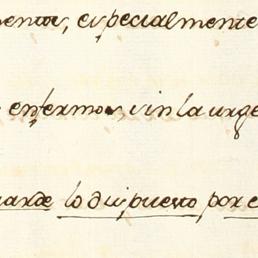 mentos, especialmente
enfermos sin la urge
uarde lo dispuesto por e